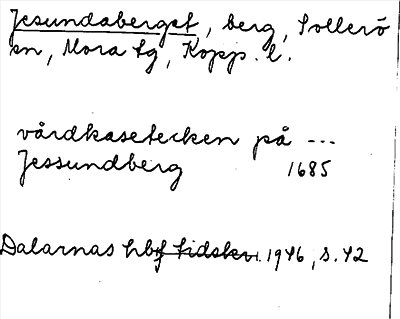 Jesundaberget, berg, Sollerö
sn, Mora tg, Kopp. l.
vårdkasetecken på ---
Jessundberg 1685
Dalarnas hbf tidskr. 1946, s. 42